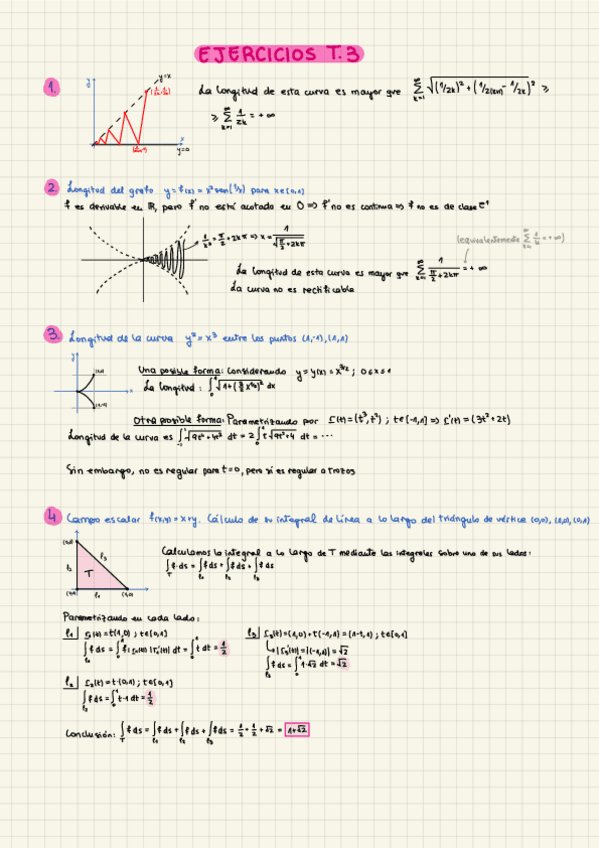 EJERCICIOS T.3
1.
y=x
y=0
La longitud de esta curva es mayor que ∑_{k=1}^{∞} √((1/2k)² + (1/2(k+1) - 1/2k)² ≥
≥ ∑_{k=1}^{∞} 1/2k = +∞
2. Longitud del grafo y = f(x) = x² sen(1/x) para x∈(0,1)
f es derivable en ℝ, pero f' no está acotada en 0 ⇒ f' no es continua ⇒ f no es de clase C¹
1/x² = π/2 + 2kπ ⇒ x = 1/√(π/2 + 2kπ)
(equivalentemente ∑_{k=1}^{∞} 1/k = +∞)
La longitud de esta curva es mayor que ∑_{k=1}^{∞} 1/(π/2 + 2kπ) = +∞
La curva no es rectificable
3. Longitud de la curva y² = x³ entre los puntos (1,-1), (1,1)
Una posible forma: Considerando y = y(x) = x^{3/2} ; 0≤x≤1
La longitud: ∫₀¹ √(1+(3/2 x^{1/2})²) dx
Otra posible forma: Parametrizando por r(t) = (t³, t²) ; t∈[-1,1] ⇒ r'(t) = (3t² + 2t)
Longitud de la curva es ∫₋₁¹ √(9t⁴+4t²) dt = 2∫₀¹ t√(9t²+4) dt = ...
Sin embargo, no es regular para t=0, pero sí es regular a trozos
4. Campo escalar f(x,y) = x+y. Cálculo de su integral de línea a lo largo del triángulo de vértice (0,0), (1,0), (0,1)
(0,1)
l₂ T l₃
(0,0) l₁ (1,0)
Calculamos la integral a lo largo de T mediante las integrales sobre uno de sus lados:
∫_T f ds = ∫_{l₁} f ds + ∫_{l₂} f ds + ∫_{l₃} f ds
Parametrizando en cada lado:
l₁| r₁(t) = t(1,0) ; t∈[0,1]
∫_{l₁} f ds = ∫₀¹ f(r₁(t)) |r₁'(t)| dt = ∫₀¹ t dt = 1/2
l₃| r₃(t) = (1,0) + t(-1,1) = (1-t, t) ; t∈[0,1]
↳ |r₃'(t)| = |(-1,1)| = √2
∫_{l₃} f ds = ∫₀¹ 1·√2 dt = √2
l₂| r₂(t) = t·(0,1) ; t∈[0,1]
∫_{l₂} f ds = ∫₀¹ t·1 dt = 1/2
Conclusión: ∫_T f ds = ∫_{l₁} f ds + ∫_{l₂} f ds + ∫_{l₃} f ds = 1/2 + 1/2 + √2 = 1+√2